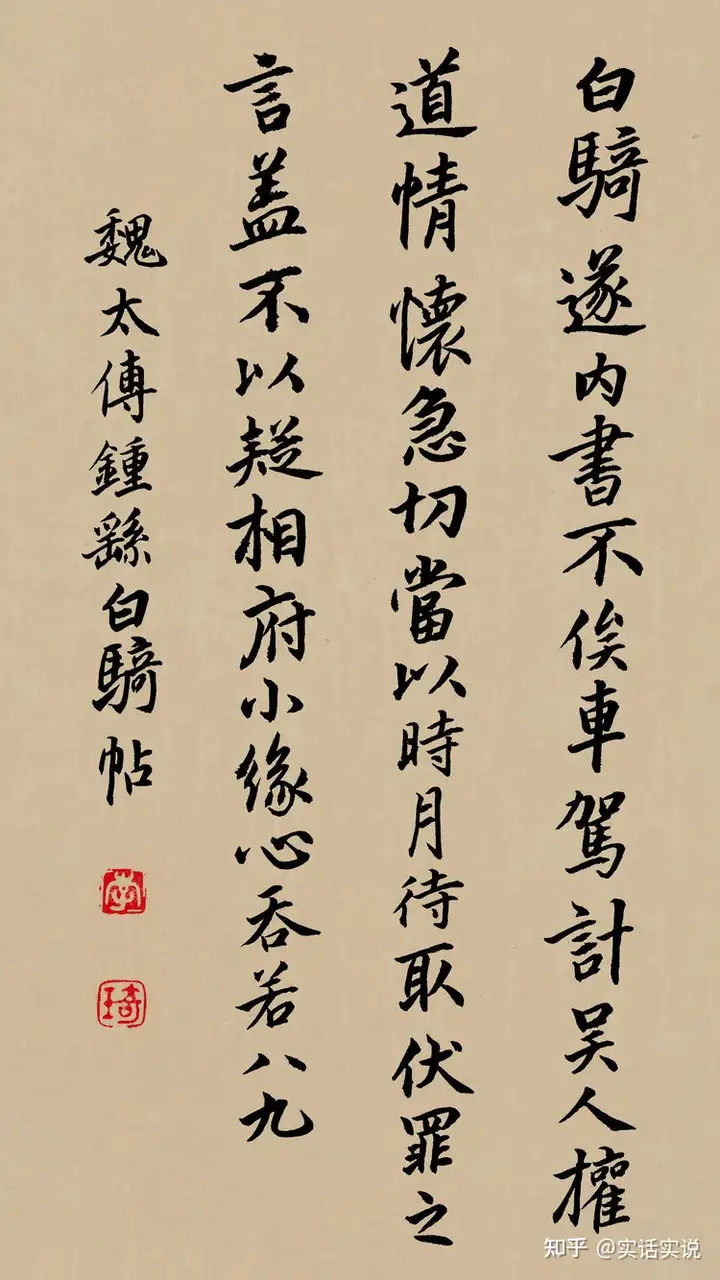 白騎遂内書不俟車駕計吴人權
道情懷急切當以時月待取伏罪之
言盖不以疑相府小緣心吞若八九
魏太傅鍾繇白騎帖
李
琦
知乎 @实话实说